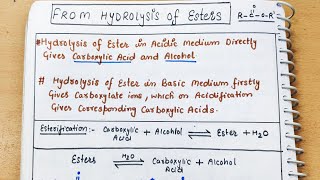 FROM HYDROLYSIS OF ESTERS
O
R-C-O-R'
* Hydrolysis of Ester in Acidic Medium Directly
Gives Carboxylic Acid and Alcohol.
# Hydrolysis of Ester in Basic Medium firstly
Gives Carboxylate ions, which on Acidification
Gives Corresponding Carboxylic Acids.
Esterification:- Carboxylic Acid + Alcohlol ⇌ Ester + H2O
Esters ⇌ H2O Carboxylic Acid + Alcohol